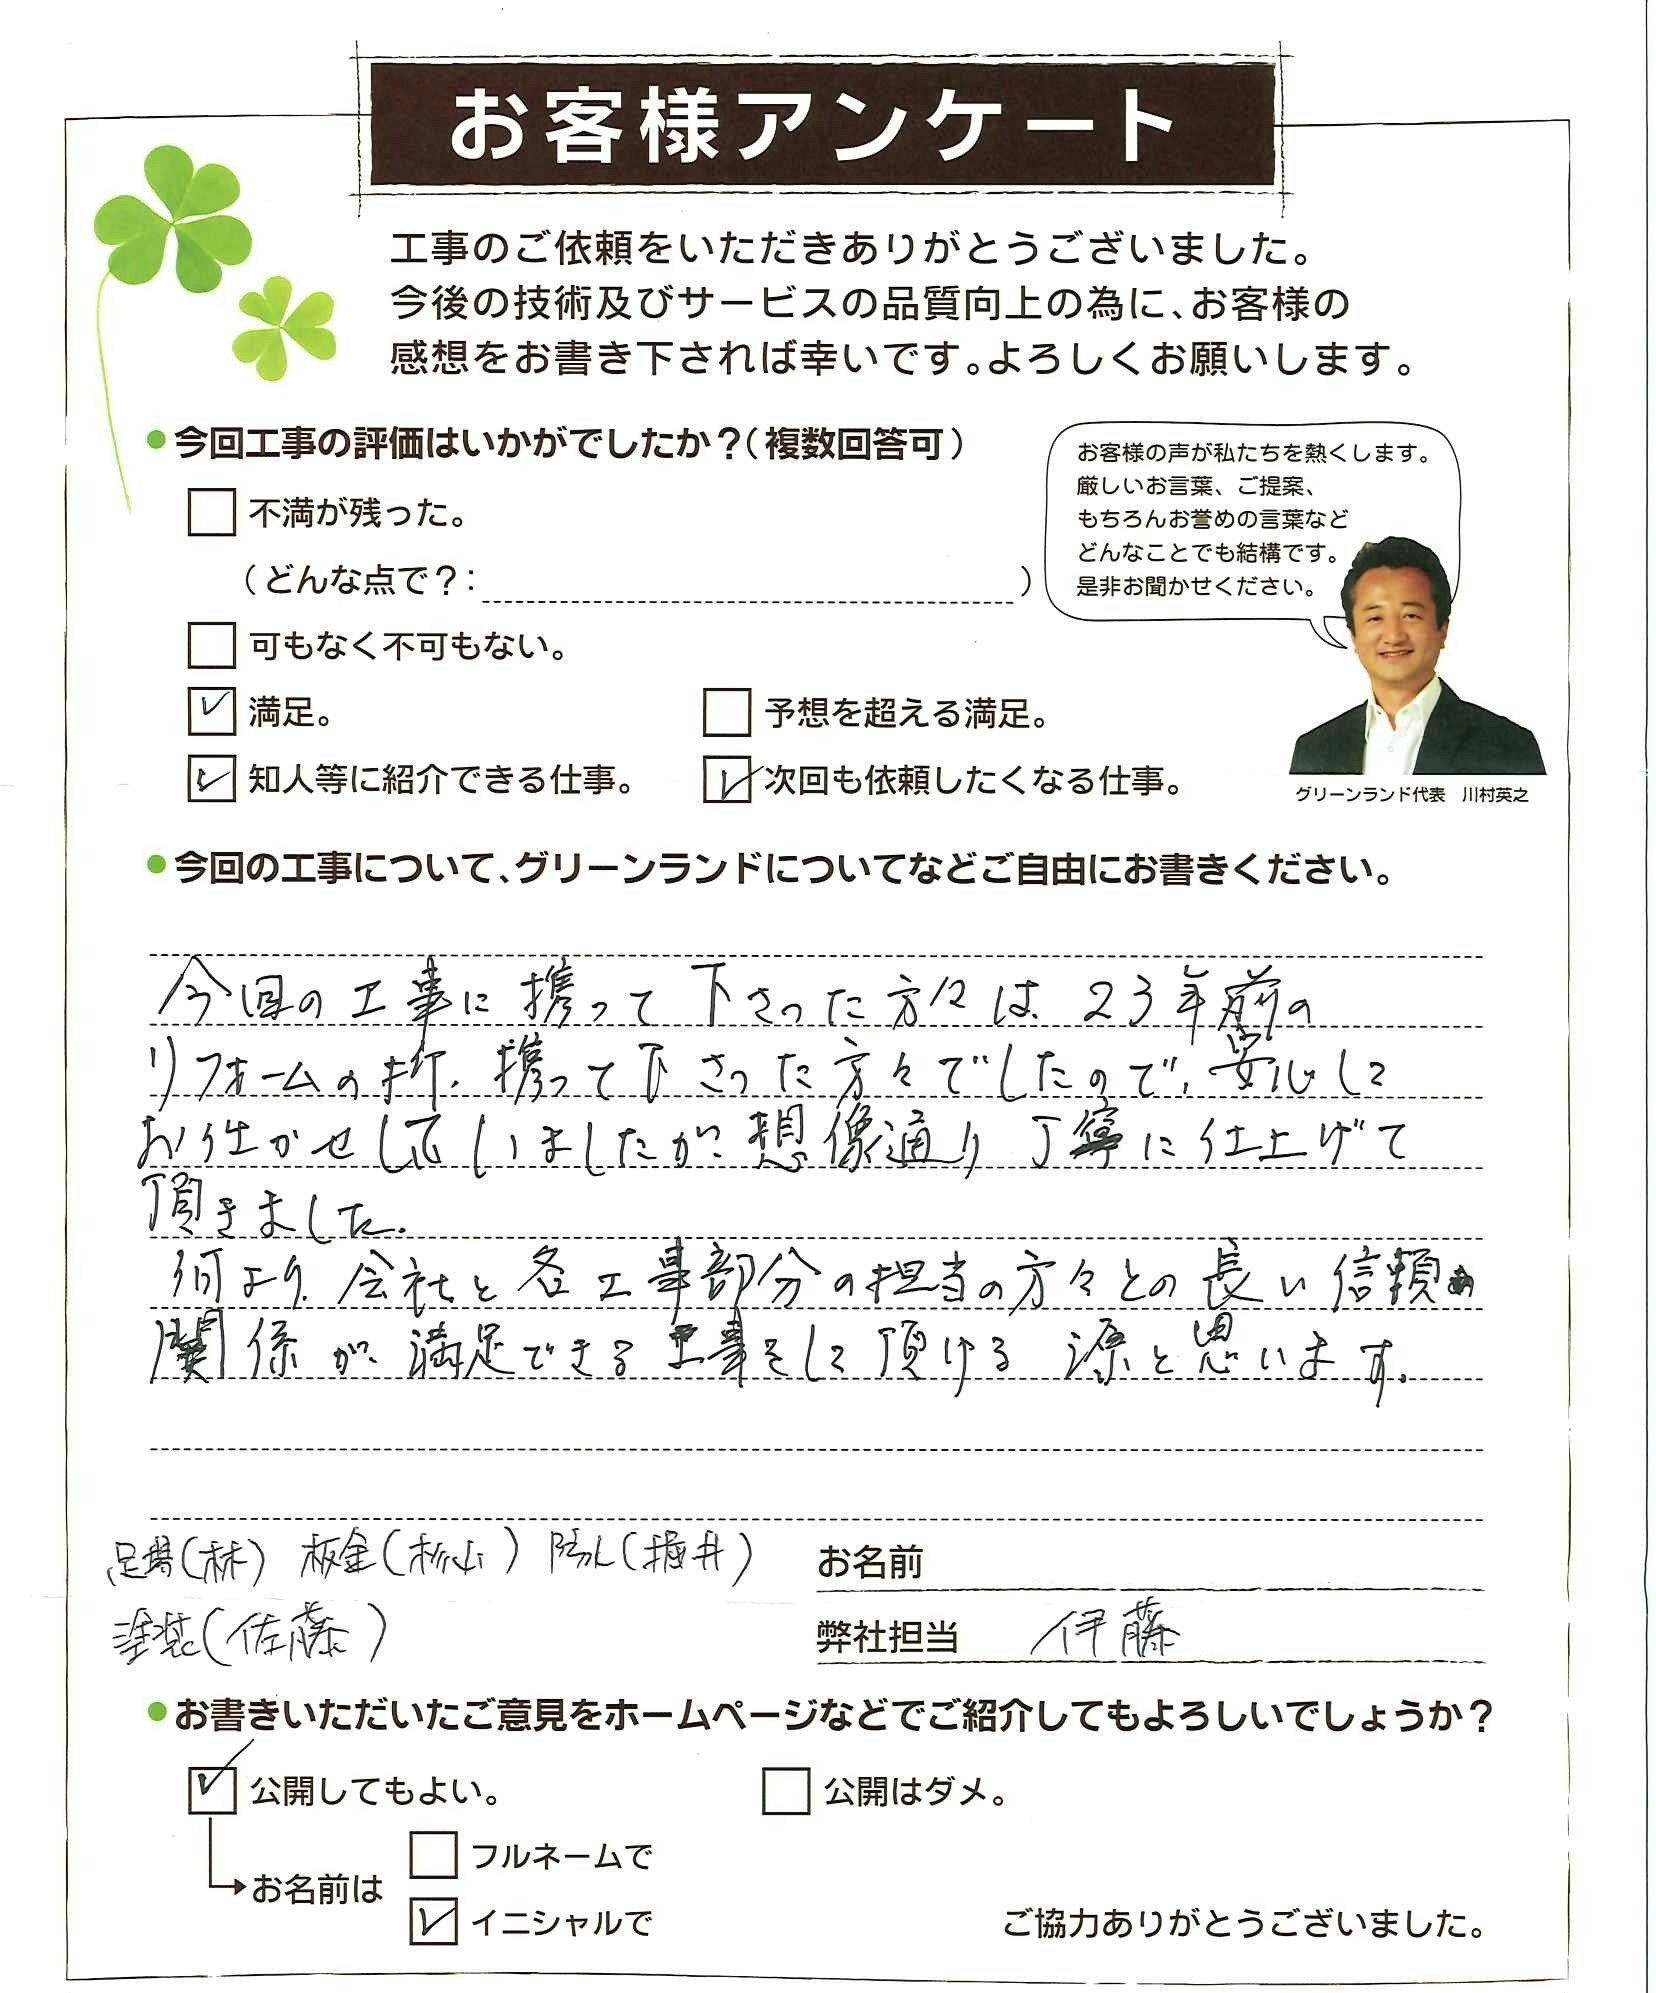 お客様アンケート
工事のご依頼をいただきありがとうございました。
今後の技術及びサービスの品質向上の為に、お客様の
感想をお書き下されば幸いです。よろしくお願いします。
●今回工事の評価はいかがでしたか？（複数回答可）
不満が残った。
（どんな点で？：　　　）
可もなく不可もない。
満足。
予想を超える満足。
知人等に紹介できる仕事。
次回も依頼したくなる仕事。
お客様の声が私たちを熱くします。
厳しいお言葉、ご提案、
もちろんお誉めの言葉など
どんなことでも結構です。
是非お聞かせください。
グリーンランド代表　川村英之
●今回の工事について、グリーンランドについてなどご自由にお書きください。
今回の工事に携って下さった方々は、23年前の
リフォームの折、携って下さった方々でしたので、安心して
お任かせしていましたが、想像通り丁寧に仕上げて
頂きました。
何より、会社と各工事部分の担当の方々との長い信頼
関係が、満足できる工事をして頂ける源と思います。
足場（林）板金（杉山）防水（堀井）
塗装（佐藤）
お名前
弊社担当　伊藤
●お書きいただいたご意見をホームページなどでご紹介してもよろしいでしょうか？
公開してもよい。
公開はダメ。
お名前は
フルネームで
イニシャルで
ご協力ありがとうございました。